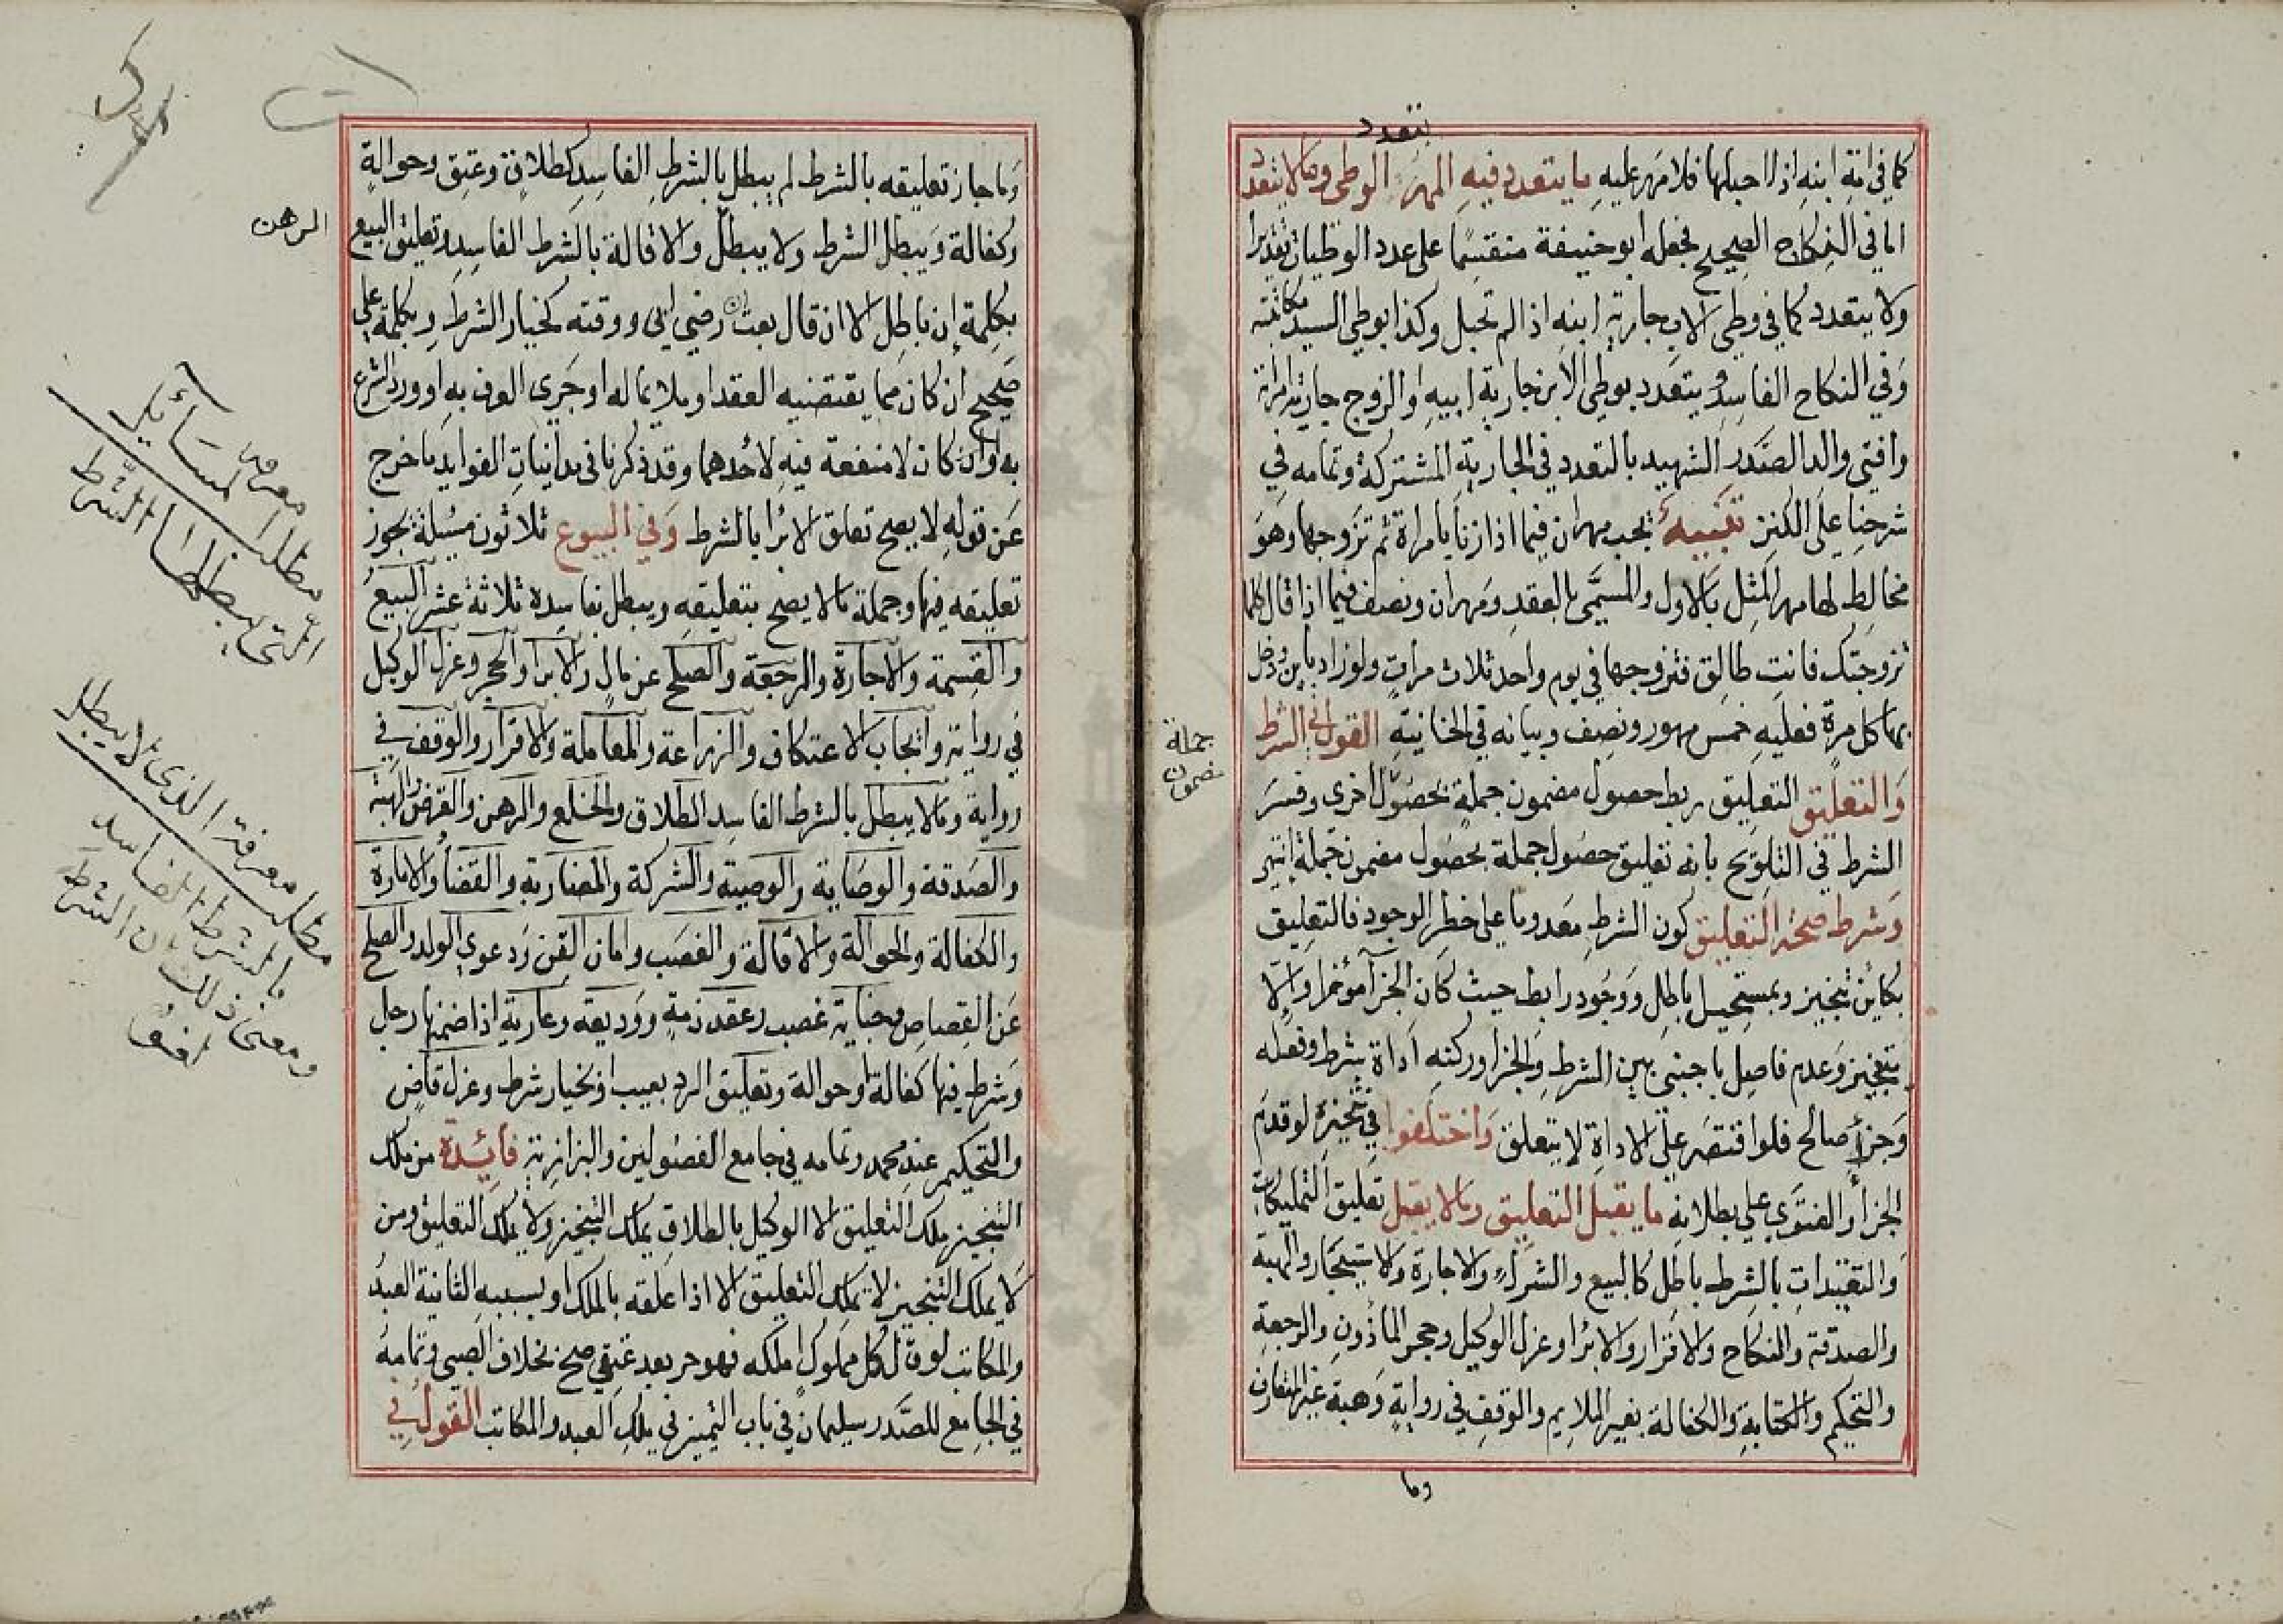 بتعدد
كما في امة ابنه اذا احبلها فلا مهر عليه ما يتعدد فيه المهر الوطي وما لا يتعدد
اما في النكاح الصحيح فجعله ابو حنيفة منقسما على عدد الوطيات تقديرا
ولا يتعدد كما في وطي الاب جارية ابنه اذا لم تحبل وكذا بوطي السيد مكاتبته
وفي النكاح الفاسد ويتعدد بوطي الابن جارية ابيه والزوج جارية امراته
وافتى والد الصدر الشهيد بالتعدد في الجارية المشتركة وتمامه في
شرحنا على الكنز تنبيه يجب مهران فيما اذا زنا بامراة ثم تزوجها وهو
مخالط لها مهر المثل بالاول والمسمى بالعقد ومهران ونصف فيما اذا قال كلما
تزوجتك فانت طالق فتزوجها في يوم واحد ثلاث مرات ولو زاد باين ودخل
بها كل مرة فعليه خمس مهور ونصف وبيانه في الخانية القول في الشرط
والتعليق التعليق ربط حصول مضمون جملة بحصول اخرى وفسر
الشرط في التلويح بانه تعليق حصول جملة بحصول مضمون جملة انتهى
وشرط صحة التعليق كون الشرط معدوما على خطر الوجود فالتعليق
بكاين تنجيز وبمستحيل باطل ووجود رابط حيث كان الجزآ مؤخرا والا
يتنجيز وعدم فاصل باجنبي بين الشرط والجزا وركنه اداة شرط وفعله
وجزأ صالح فلو اقتصر على الاداة لا يتعلق واختلفوا في تنجيزه لو قدم
الجزأ والفتوى على بطلانه ما يقبل التعليق وما لا يقبل تعليق التمليكات
والتقييدات بالشرط باطل كالبيع والشراء والاجارة والاستيجار والهبة
والصدقة والنكاح والاقرار والابرا وعزل الوكيل وحجر الماذون والرجعة
والتحكيم والكتابة والكفالة بغير الملايم والوقف في رواية وهبة غير المتعارف
وما
جملة
مضمون
وما جاز تعليقه بالشرط لم يبطل بالشرط الفاسد كطلاق وعتق وحوالة
وكفالة ويبطل الشرط ولا يبطل والاقالة بالشرط الفاسد وتعليق البيع
بكلمة ان باطل الا ان قال بعت ان رضي ابي ووقته كخيار الشرط وبكلمة على
صحيح ان كان مما يقتضيه العقد او ملايما له او جرى العرف به او ورد الشرع
به او ان كان لا منفعة فيه لاحدهما وقد ذكرنا في مداينات الفوايد ما خرج
عن قوله لا يصح تعلق الابرا بالشرط وفي البيوع ثلاثون مسيلة يجوز
تعليقه فيها وجملة ما لا يصح بتعليقه ويبطل بفاسده ثلاثة عشر البيع
والقسمة والاجارة والرجعة والصلح عن مال والابرا والحجر وعزل الوكيل
في رواية وايجاب الاعتكاف والزراعة والمعاملة والاقرار والوقف في
رواية وما لا يبطل بالشرط الفاسد الطلاق والخلع والرهن والقرض والهبة
والصدقة والوصاية والوصية والشركة والمضاربة والقضأ والامارة
والكفالة والحوالة والاقالة والغصب وامان القن ودعوى الولد والصلح
عن القصاص وجناية غصب وعقد ذمة ووديعة وعارية اذا ضمنها رجل
وشرط فيها كفالة او حوالة وتعليق الرد بعيب او بخيار شرط وعزل قاض
والتحكيم عند محمد وتمامه في جامع الفصولين والبزازية فايدة من ملك
التنجيز ملك التعليق الا الوكيل بالطلاق يملك التنجيز ولا يملك التعليق ومن
لا يملك التنجيز لا يملك التعليق الا اذا علقه بالملك او بسببه الثانية العبد
والمكاتب لو قال كل مملوك املكه فهو حر بعد عتقي صح بخلاف الصبي وتمامه
في الجامع للصدر سليمان في باب اليمين في ملك العبد والمكاتب القول في
الرهن
مطلب معرفة المسائل
التي يبطلها الشرط
مطلب معرفة الذي لا يبطل
بالشرط الفاسد
ومعنى ذلك ان الشرط